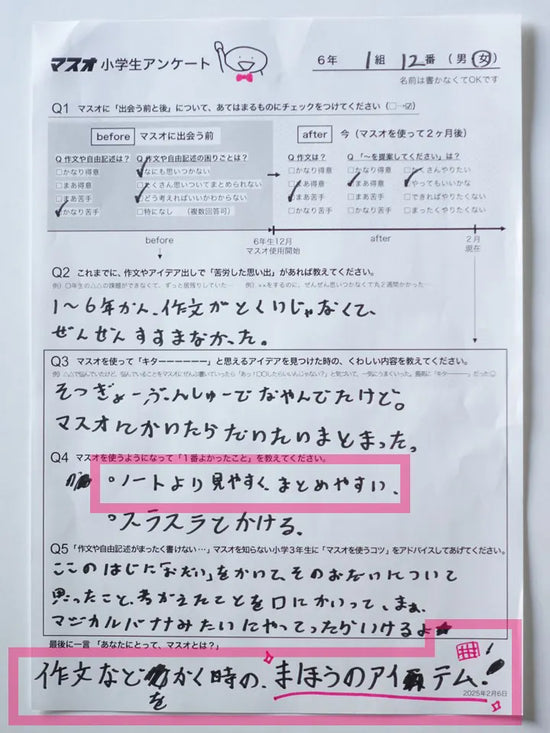 マスオ 小学生アンケート
6年 1組 12番 (男 女)
名前は書かなくてOKです
Q1 マスオに「出会う前と後」について、あてはまるものにチェックをつけてください(□→☑)
before マスオに出会う前
after 今(マスオを使って2ヶ月後)
Q 作文や自由記述は? Q 作文や自由記述の困りごとは?
Q 作文は? Q 「〜を提案してください」は?
□かなり得意 ☑なにも思いつかない
□かなり得意 □かなり得意 □たくさんやりたい
□まあ得意 □たくさん思いついてまとめられない
□まあ得意 ☑まあ得意 ☑やってもいいかな
□まあ苦手 ☑どう考えればいいかわからない
☑まあ苦手 □まあ苦手 □できればやりたくない
☑かなり苦手 □特になし (複数回答可)
□かなり苦手 □かなり苦手 □まったくやりたくない
before
6年生12月
マスオ使用開始
after
2月
現在
Q2 これまでに、作文やアイデア出しで「苦労した思い出」があれば教えてください。
1〜6年かん、作文がとくいじゃなくて、
ぜんぜんすすまなかった。
Q3 マスオを使って「キターーーーーー」と思えるアイデアを見つけた時の、くわしい内容を教えてください。
そつぎょーぶんしゅーでなやんでたけど。
マスオにかいたらだいたいまとまった。
Q4 マスオを使うようになって「1番よかったこと」を教えてください。
°ノートより見やすく、まとめやすい、
°スラスラとかける。
Q5 「作文や自由記述がまったく書けない…」マスオを知らない小学3年生に「マスオを使うコツ」をアドバイスしてあげてください。
ここのはじに「おだい」をかいて、そのおだいについて
思ったこと、考がえたことを口にかいって、まぁ、
マジカルバナナみたいにやってったらいけるよ★
最後に一言「あなたにとって、マスオとは?」
作文などをかく時の、まほうのアイテム!
2025年2月6日